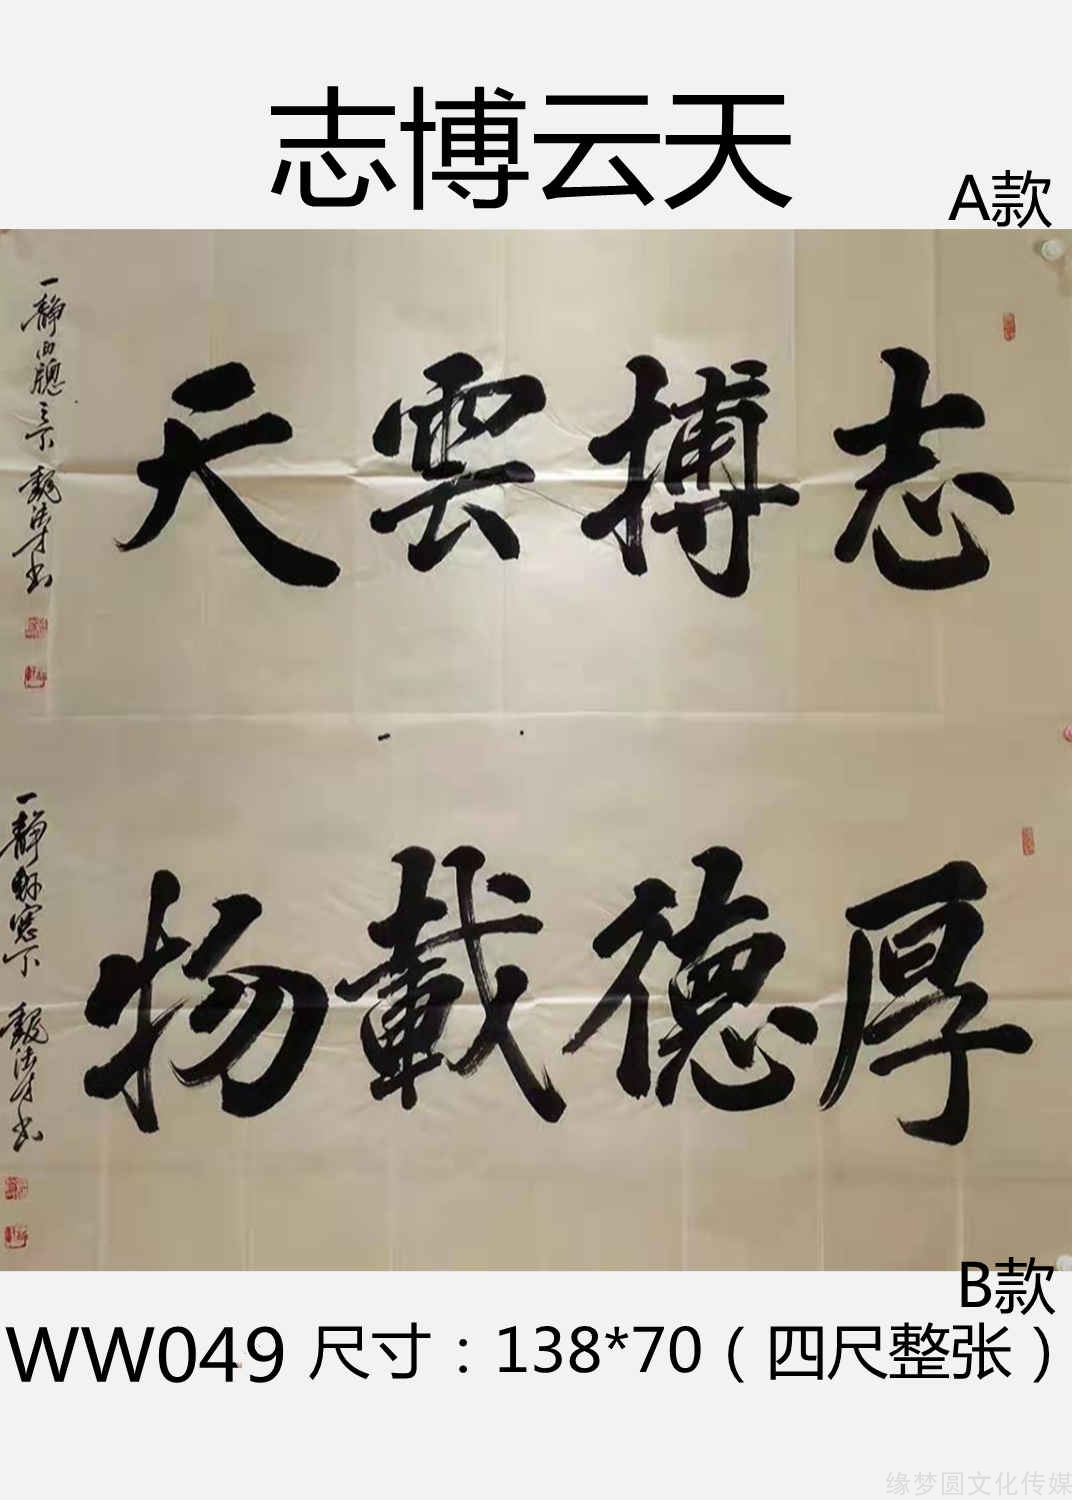 志博云天
A款
志搏雲天
一静
魏法才书
厚德載物
一静
魏法才书
B款
WW049 尺寸：138*70（四尺整张）
缘梦圆文化传媒